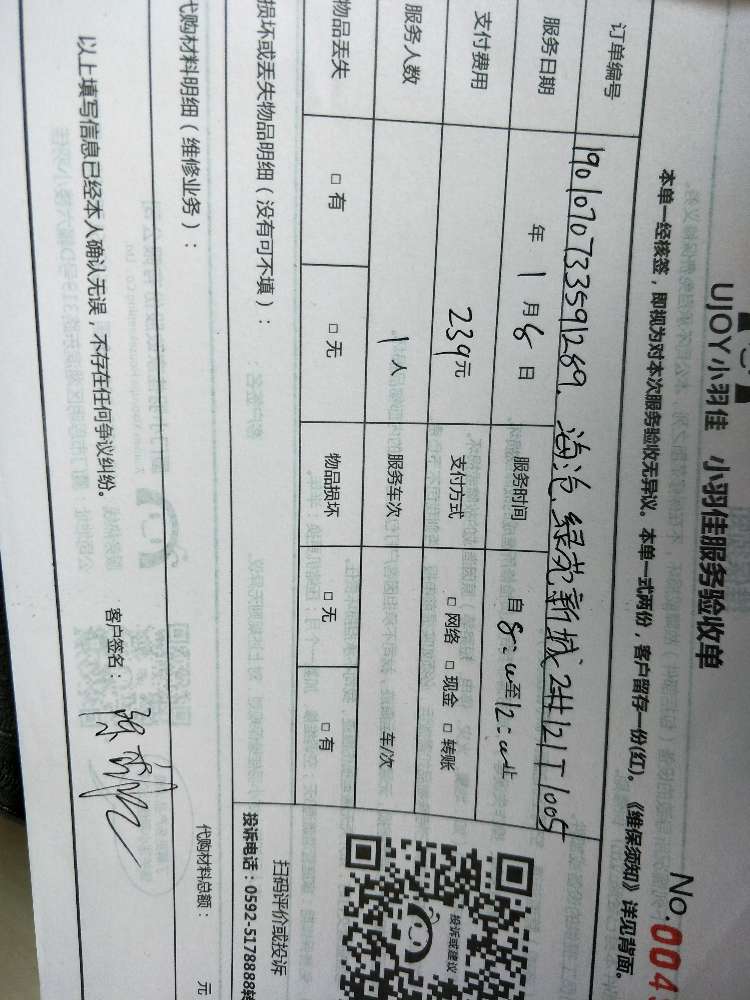 UJOY小羽佳 小羽佳服务验收单
No.004
本单一经核签，即视为对本次服务验收无异议。本单一式两份，客户留存一份(红)。《维保须知》详见背面。
订单编号 1901070733591289. 海沧绿苑新城
服务日期 年 1 月 8 日 服务时间 自 8:00至12:00止
支付费用 239元 支付方式 □ 网络 □ 现金 □ 转账
服务人数 1 人 服务车次 车/次
物品丢失 □ 有 □ 无 物品损坏 □ 无 □ 有
投诉或建议
扫码评价或投诉
投诉电话：0592-5178888转
损坏或丢失物品明细（没有可不填）：
代购材料明细（维修业务）：
代购材料总额： 元
以上填写信息已经本人确认无误，不存在任何争议纠纷。
客户签名：